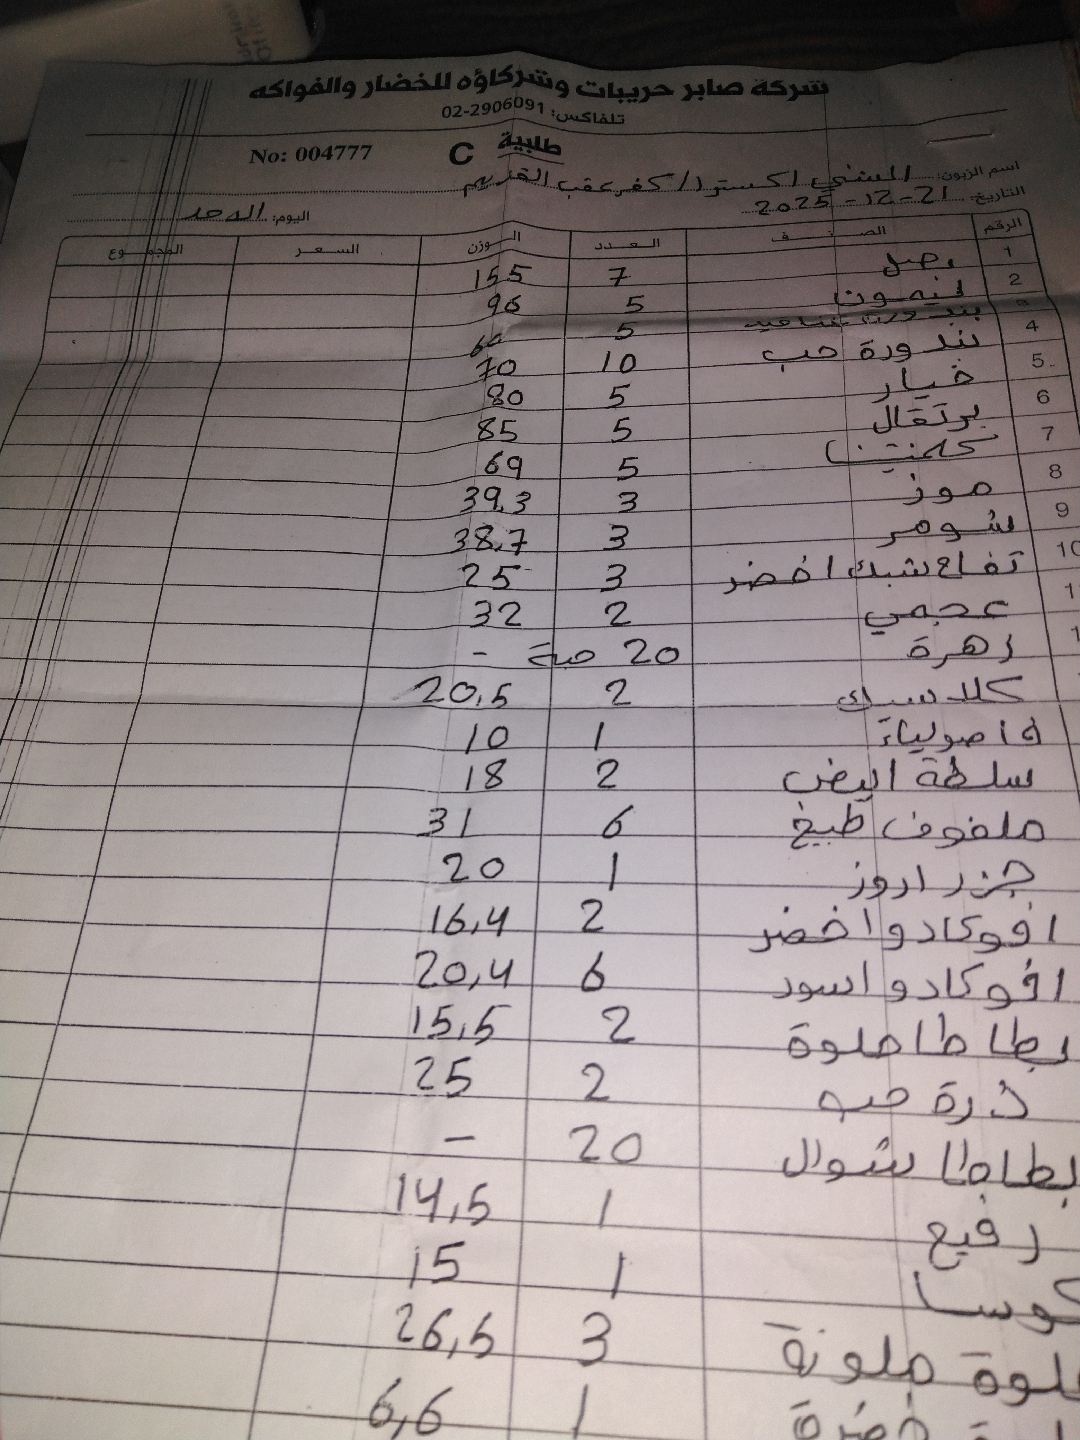 شركة صابر حريبات وشركاؤه للخضار والفواكه
تلفاكس: 02-2906091
No: 004777 C طلبية
اسم الزبون: الشني اكسترا / كفر عقب القديم
التاريخ: 21-12-2025 اليوم: الاحد
الرقم الصنف العدد الوزن السعر المجموع
1 بصل 7 155
2 ليمون 5 96
بندورة عناقيد 5
4 بندورة حب 10 70
5 خيار 5 80
6 برتقال 5 85
7 كلمنتينا 5 69
8 موز 3 39.3
9 شومر 3 38.7
10 تفاح شبك اخضر 3 25
عجمي 2 32
زهرة 20 حبة -
كلاسيك 2 20,5
فاصولياء 1 10
سلطة ابيض 2 18
ملفوف طبيخ 6 31
جزر اروز 1 20
افوكادو اخضر 2 16,4
افوكادو اسود 6 20,4
بطاطا حلوة 2 15,5
ذرة حب 2 25
بطاطا شوال 20 -
رفيع 1 14,5
كوسا 1 15
حلوة ملونة 3 26,5
خضرة 1 6,6